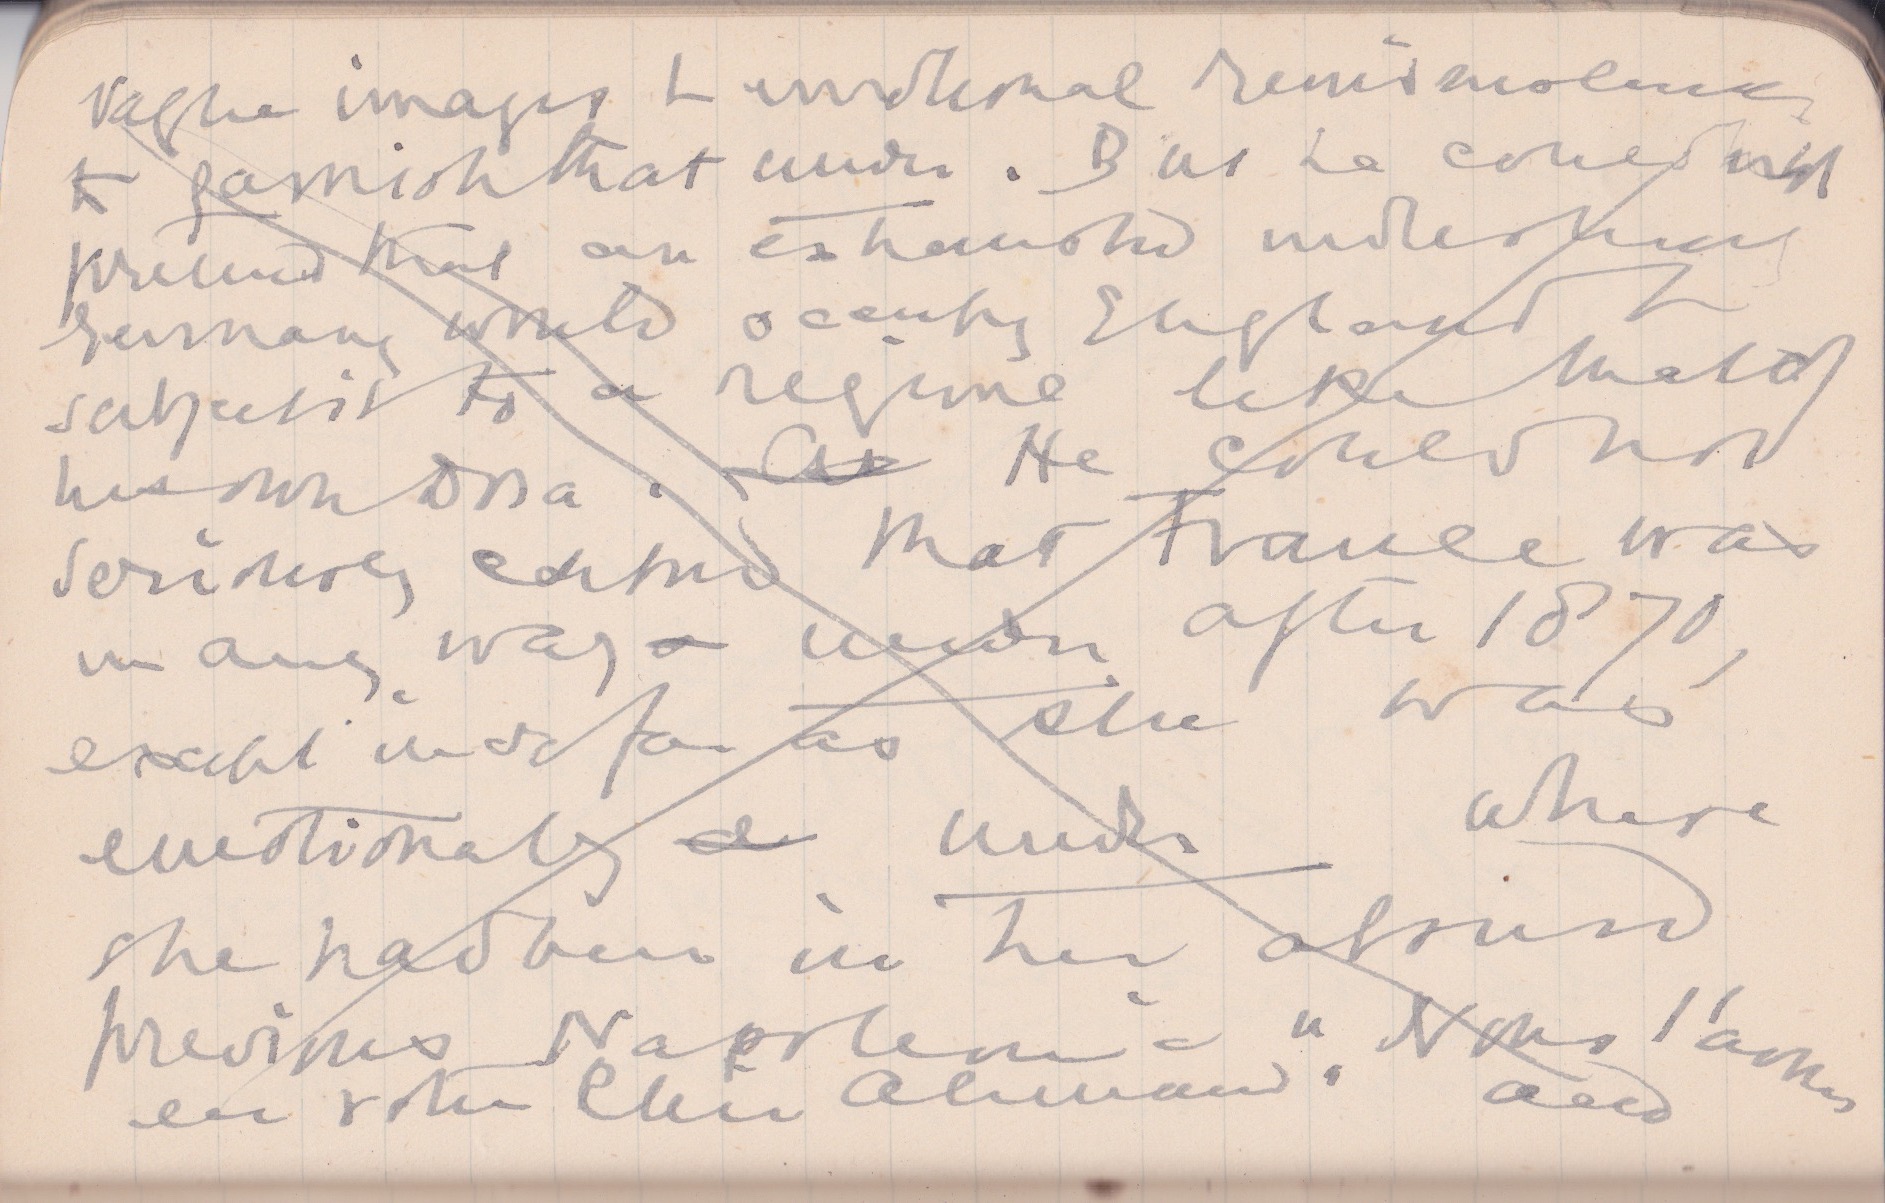 vague images & emotional reminiscences
to garnish that under. But he could not
pretend that an exhausted
Germany would occupy England &
subject it to a regime like that of
his own
He could not
seriously that France was
in any way under after 1870,
except in so far as she was
emotionally under where
she had been in her absurd
previous Napoleonic "Nous l'avons
eu votre Rhin Allemand". and